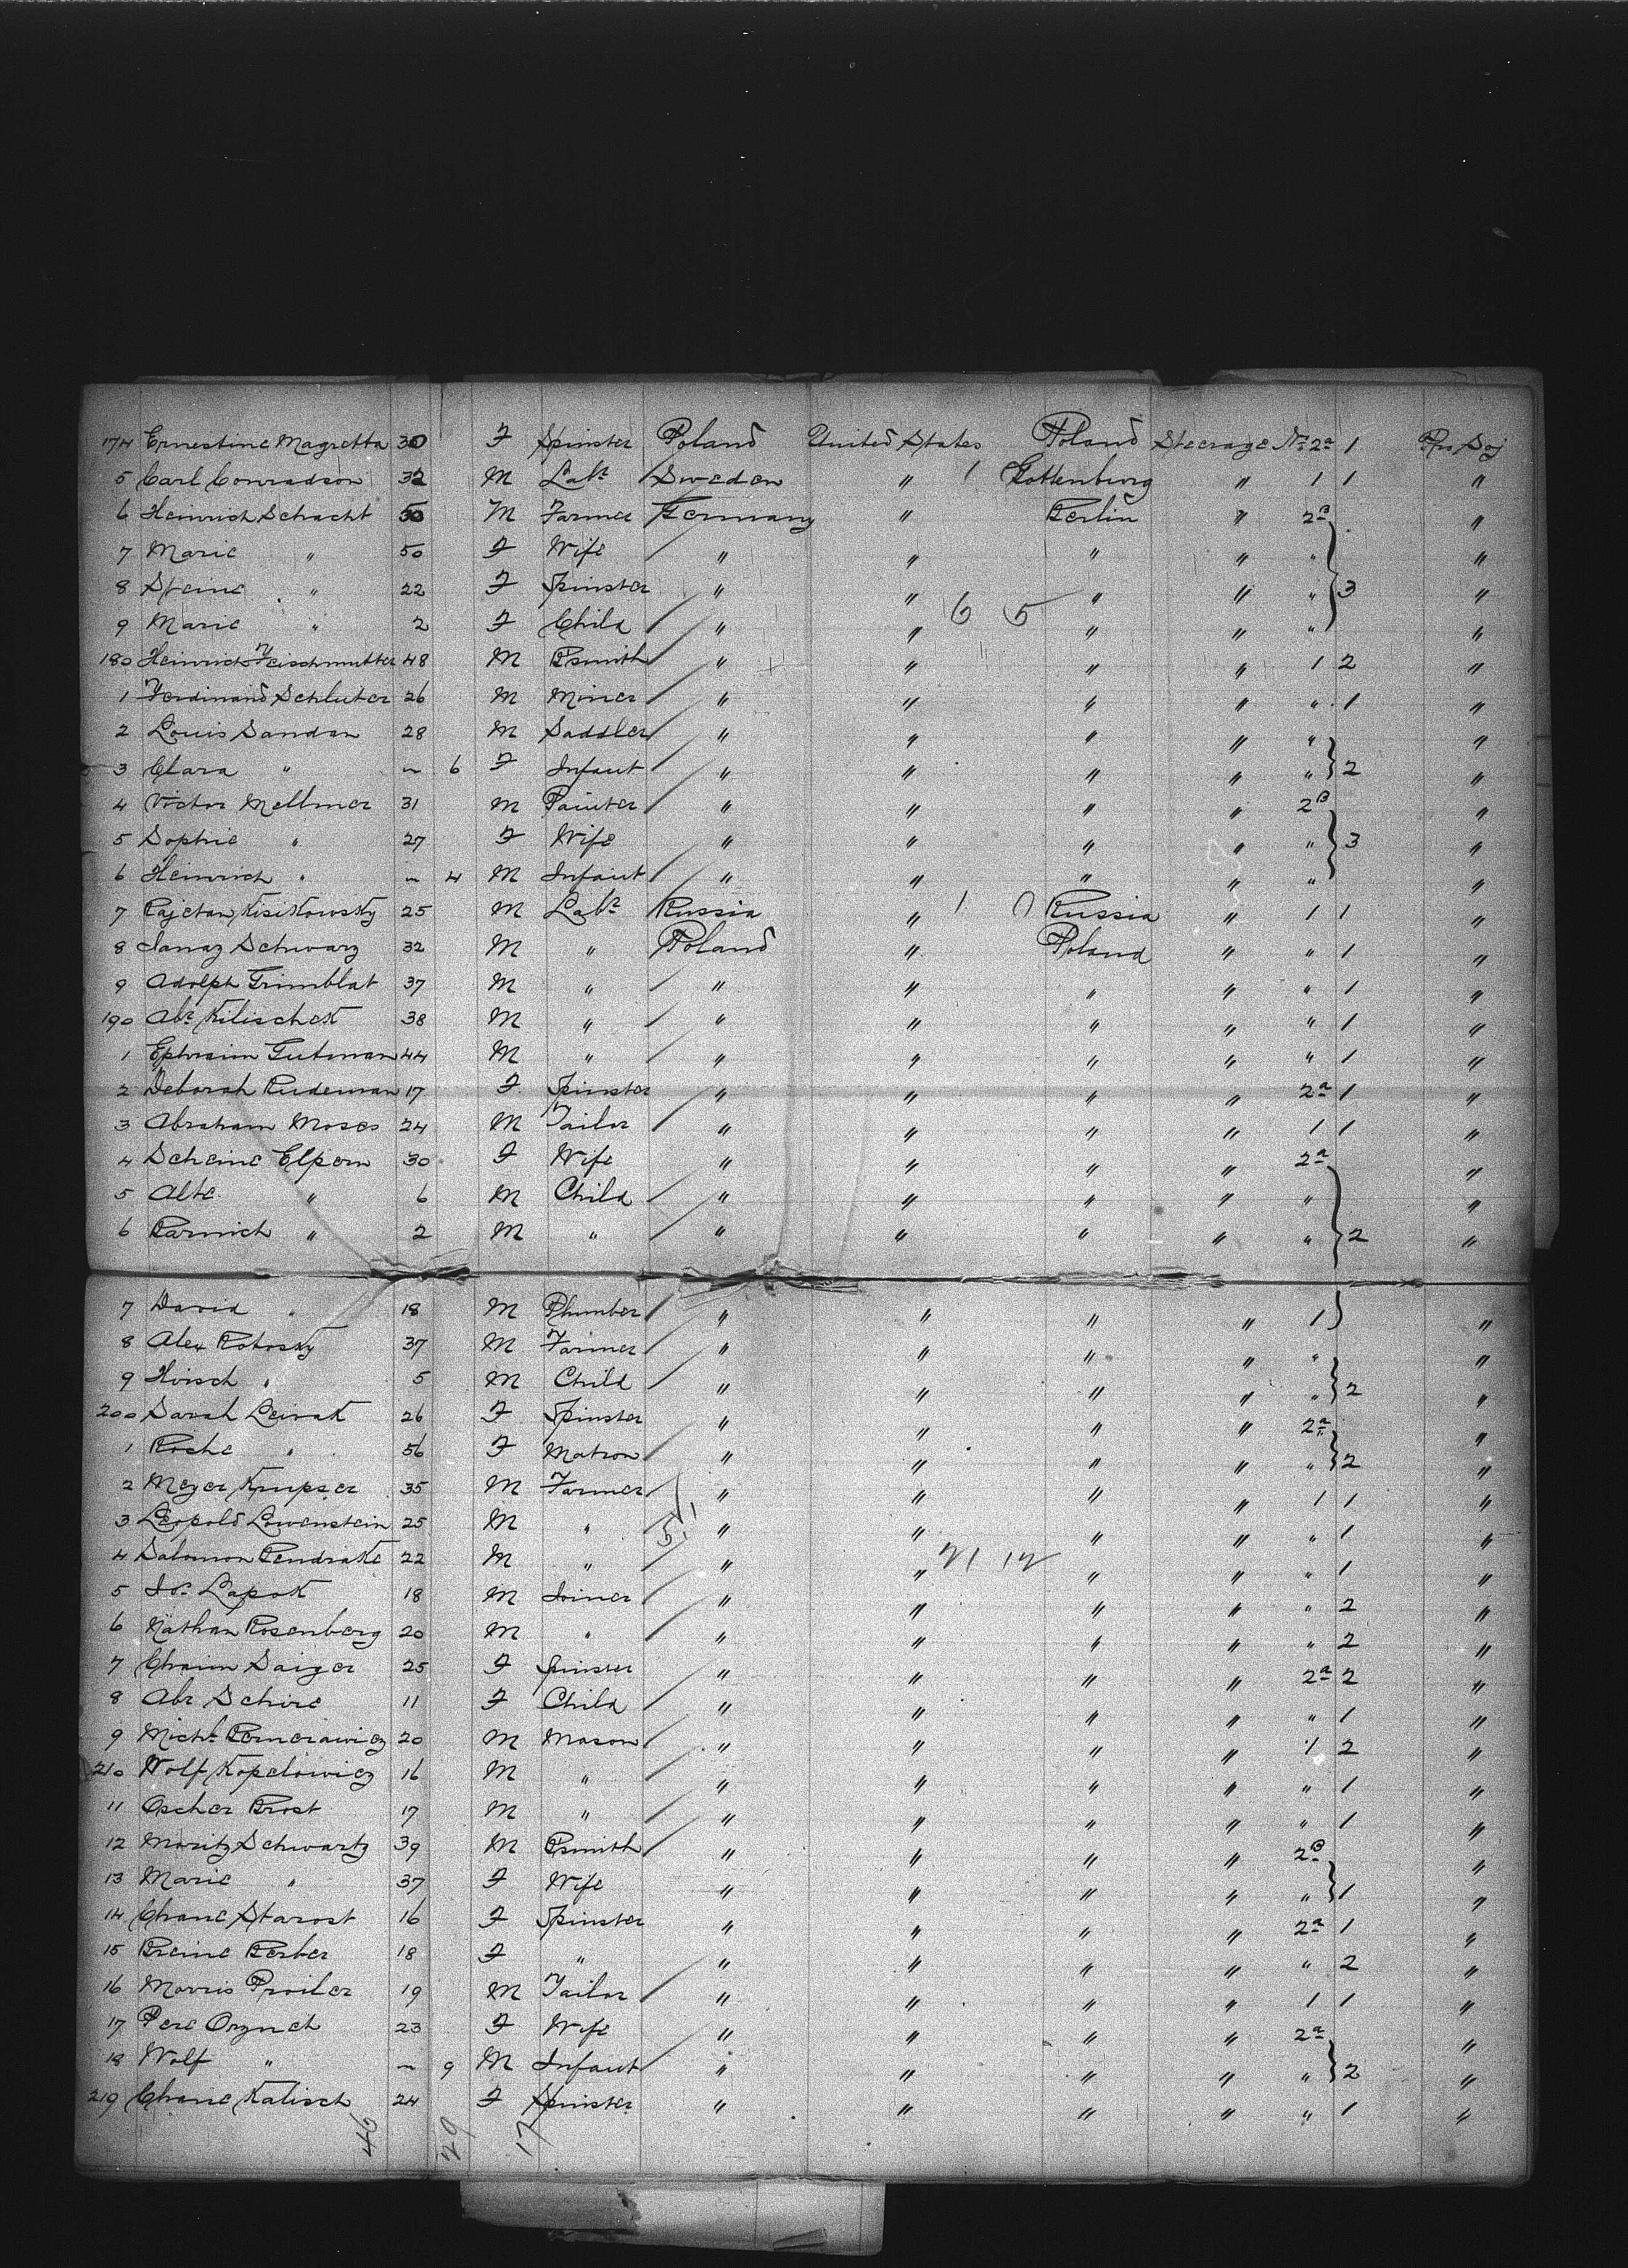 174 Ernestine Magretta 30 F Spinster Poland United States Poland Steerage No 2a 1 Pro Soj
5 Carl Conradson 32 M Labr Sweden " 1 Gottenburg " 1 1 "
6 Heinrich Schacht 50 M Farmer Germany " Berlin " 2B "
7 Marie " 50 F Wife " " " " " "
8 Steine " 22 F Spinster " " " " " 3 "
9 Marie " 2 F Child " " 6 5 " " " "
180 Heinrich Feischmutter 48 M Bsmith " " " " 1 2 "
1 Ferdinand Schluter 26 M Miner " " " " " 1 "
2 Louis Sandan 28 M Saddler " " " " " "
3 Clara " ~ 6 F Infant " " " " " 2 "
4 Victor Mellmer 31 M Painter " " " " 2B "
5 Sophie " 27 F Wife " " " " " 3 "
6 Heinrich " ~ 4 M Infant " " " " " "
7 Kisikowsky 25 M Labr Russia " 1 0 Russia " 1 1 "
8 Schwarz 32 M " Poland " Poland " " 1 "
9 Adolph Grimblat 37 M " " " " " " 1 "
190 Abr Kilischek 38 M " " " " " " 1 "
1 Ephraim Gutman 44 M " " " " " " 1 "
2 Deborah Rudeman 17 F Spinster " " " " 2a 1 "
3 Abraham Moses 24 M Tailor " " " " 1 1 "
4 Scheine Elpern 30 F Wife " " " " 2a "
5 Alte " 6 M Child " " " " " "
6 " 2 M " " " " " " 2 "
7 David " 18 M Plumber " " " " 1 "
8 Alex Rotosky 37 M Farmer " " " " " "
9 Hirsch " 5 M Child " " " " " 2 "
200 Sarah Leivak 26 F Spinster " " " " 2a "
1 Roche " 56 F Matron " " " " " 2 "
2 Meyer Krupser 35 M Farmer " " " " 1 1 "
3 Leopold Lowenstein 25 M " 51 " " " " " 1 "
4 Salomon Pendrake 22 M " " " 21 12 " " " 1 "
5 Lapok 18 M Joiner " " " " " 2 "
6 Nathan Rosenberg 20 M " " " " " " 2 "
7 Chaim Saiger 25 F Spinster " " " " 2a 2 "
8 Abr Schire 11 F Child " " " " " 1 "
9 Michl 20 M Mason " " " " 1 2 "
210 Wolf Kopelowicz 16 M " " " " " " 1 "
11 Oscher Brost 17 M " " " " " " 1 "
12 Moritz Schwartz 39 M Bsmith " " " " 2B "
13 Marie " 37 F Wife " " " " " 1 "
14 Chane Starost 16 F Spinster " " " " 2a 1 "
15 Breine Berber 18 F " " " " " " 2 "
16 Morris Proiler 19 M Tailor " " " " 1 1 "
17 Pere 23 F Wife " " " " 2a "
18 Wolf " ~ 9 M Infant " " " " " 2 "
219 Chane Kalisch 24 F Spinster " " " " " 1 "
46 29 17